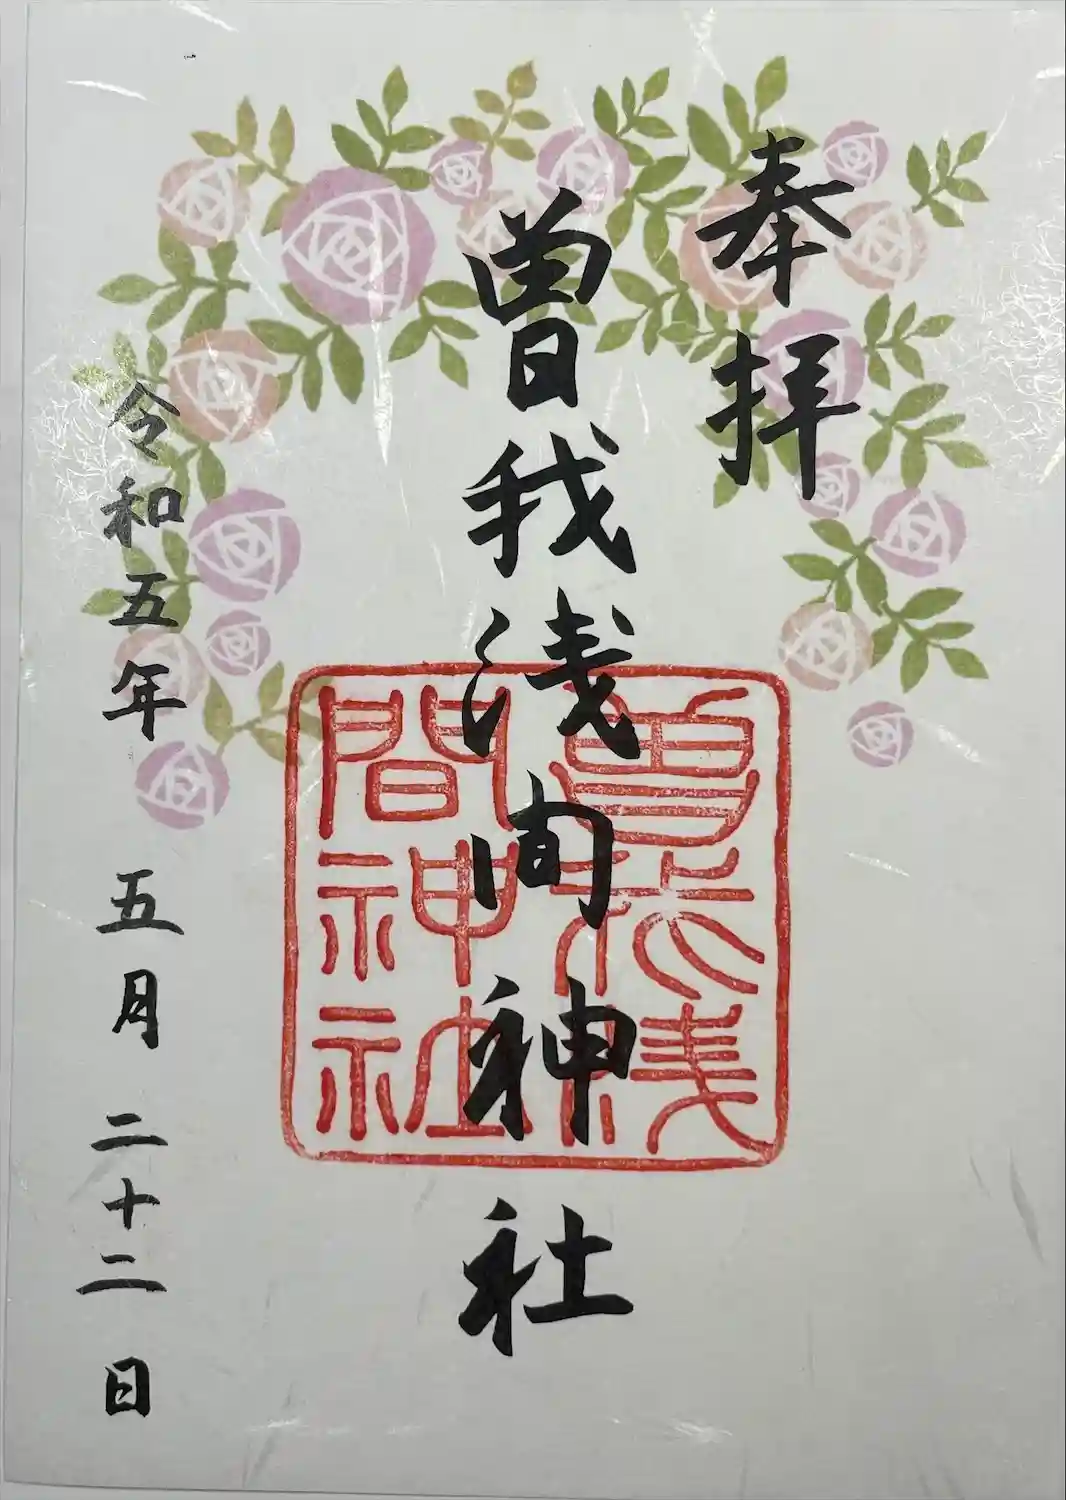 奉拝
曽我浅間神社
曽我浅
間神社
令和五年 五月 二十二日